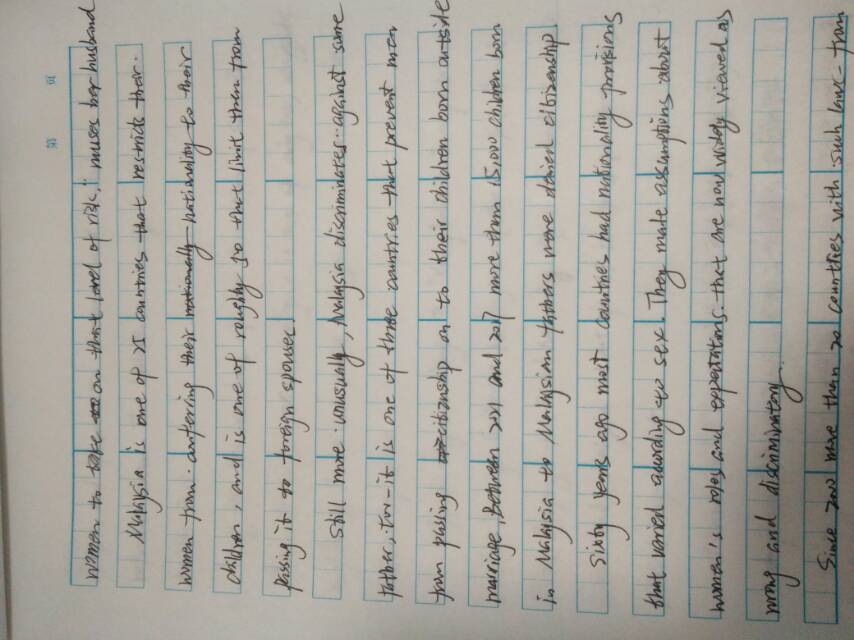 第 页
women to take on that level of risk," muses her husband
Malaysia is one of 25 countries that restricts their
women from confering their nationally nationality to their
children, and is one of roughly 50 that limit them from
passing it to foreign spouses.
Still more unusually, Malaysia discriminates against some
father, too-it is one of three countries that prevent men
from passing citizenship on to their children born outside
marriage, Between 2021 and 2017 more them 15,000 children born
in Malaysia to Malaysian fathers more denied citizenship.
Sixty years ago most countries had nationality provisions
that varied acording to sex. They make assumptions about
women's roles and expectations that are now widely viewed as
wrong and discriminatory.
Since 2000 more than 20 counties with such laws